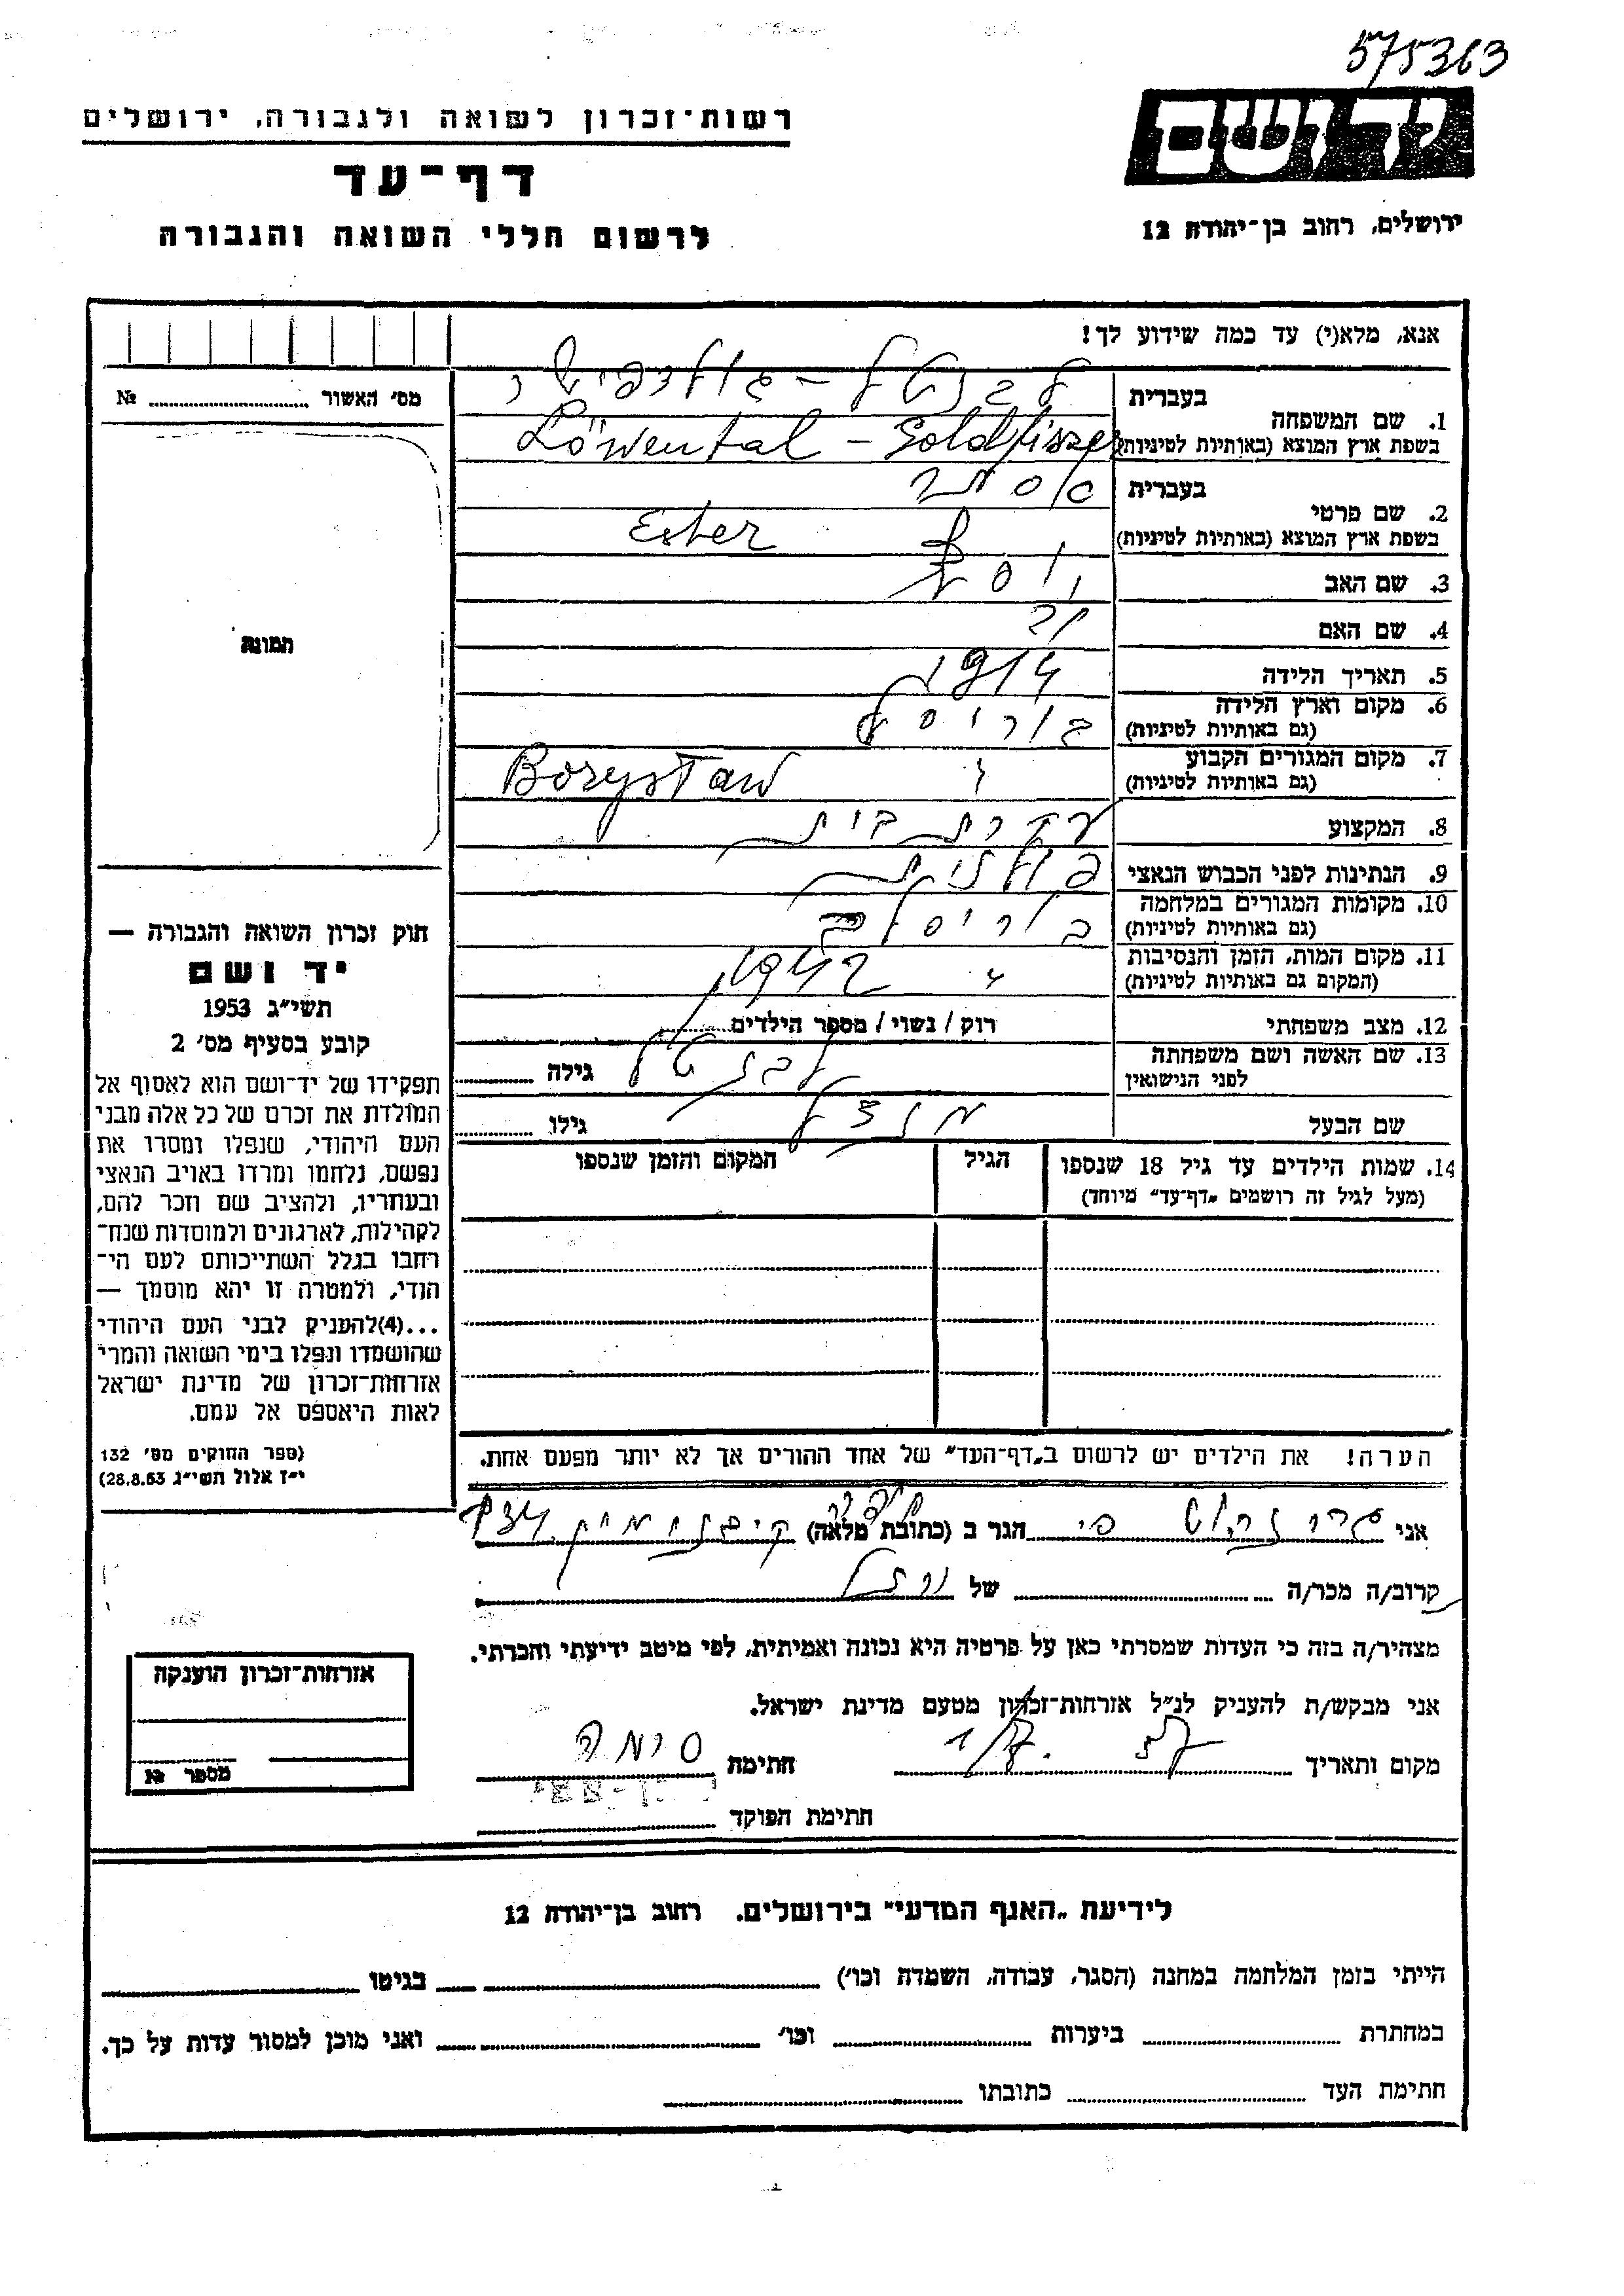 575363
יד ושם
ירושלים, רחוב בן-יהודה 12
רשות-זכרון לשואה ולגבורה, ירושלים
דף-עד
לרשום חללי השואה והגבורה
אנא, מלא(י) עד כמה שידוע לך!
1. שם המשפחה
בעברית
בשפת ארץ המוצא (באותיות לטיניות) Löwental - Goldfiszer
2. שם פרטי
בעברית אסתר
בשפת ארץ המוצא (באותיות לטיניות) Ester
3. שם האב יוסף
4. שם האם
5. תאריך הלידה 1914
6. מקום וארץ הלידה
(גם באותיות לטיניות)
7. מקום המגורים הקבוע Borysław
(גם באותיות לטיניות)
8. המקצוע עקרת בית
9. הנתינות לפני הכבוש הנאצי פולנית
10. מקומות המגורים במלחמה בוריסלב
(גם באותיות לטיניות)
11. מקום המות, הזמן והנסיבות " 1942
(המקום גם באותיות לטיניות)
12. מצב משפחתי רוק / נשוי / מספר הילדים
13. שם האשה ושם משפחתה
לפני הנישואין
גילה
שם הבעל
גילו
14. שמות הילדים עד גיל 18 שנספו הגיל המקום והזמן שנספו
(מעל לגיל זה רושמים „דף-עד" מיוחד)
הערה! את הילדים יש לרשום ב„דף-העד" של אחד ההורים אך לא יותר מפעם אחת.
מס׳ האשור №
תמונה
חוק זכרון השואה והגבורה —
יד ושם
תשי"ג 1953
קובע בסעיף מס׳ 2
תפקידו של יד-ושם הוא לאסוף אל
המולדת את זכרם של כל אלה מבני
העם היהודי, שנפלו ומסרו את
נפשם, נלחמו ומרדו באויב הנאצי
ובעוזריו, ולהציב שם וזכר להם,
לקהילות, לארגונים ולמוסדות שנח-
רחבו בגלל השתייכותם לעם הי-
הודי, ולמטרה זו יהא מוסמך —
...(4)להעניק לבני העם היהודי
שהושמדו ונפלו בימי השואה והמרי
אזרחות-זכרון של מדינת ישראל
לאות היאספם אל עמם.
(ספר החוקים מס׳ 132
י"ז אלול תשי"ג 28.8.53)
אני הגר ב (כתובת מלאה)
קרוב/ה מכר/ה של
מצהיר/ה בזה כי העדות שמסרתי כאן על פרטיה היא נכונה ואמיתית, לפי מיטב ידיעתי והכרתי.
אני מבקש/ת להעניק לנ"ל אזרחות-זכרון מטעם מדינת ישראל.
מקום ותאריך חתימת סימה
חתימת הפוקד
אזרחות-זכרון הוענקה
מספר №
לידיעת „האגף המדעי" בירושלים. רחוב בן-יהודה 12
הייתי בזמן המלחמה במחנה (הסגר, עבודה, השמדה וכו׳) בגיטו
במחתרת ביערות וכו׳ ואני מוכן למסור עדות על כך.
חתימת העד כתובתו